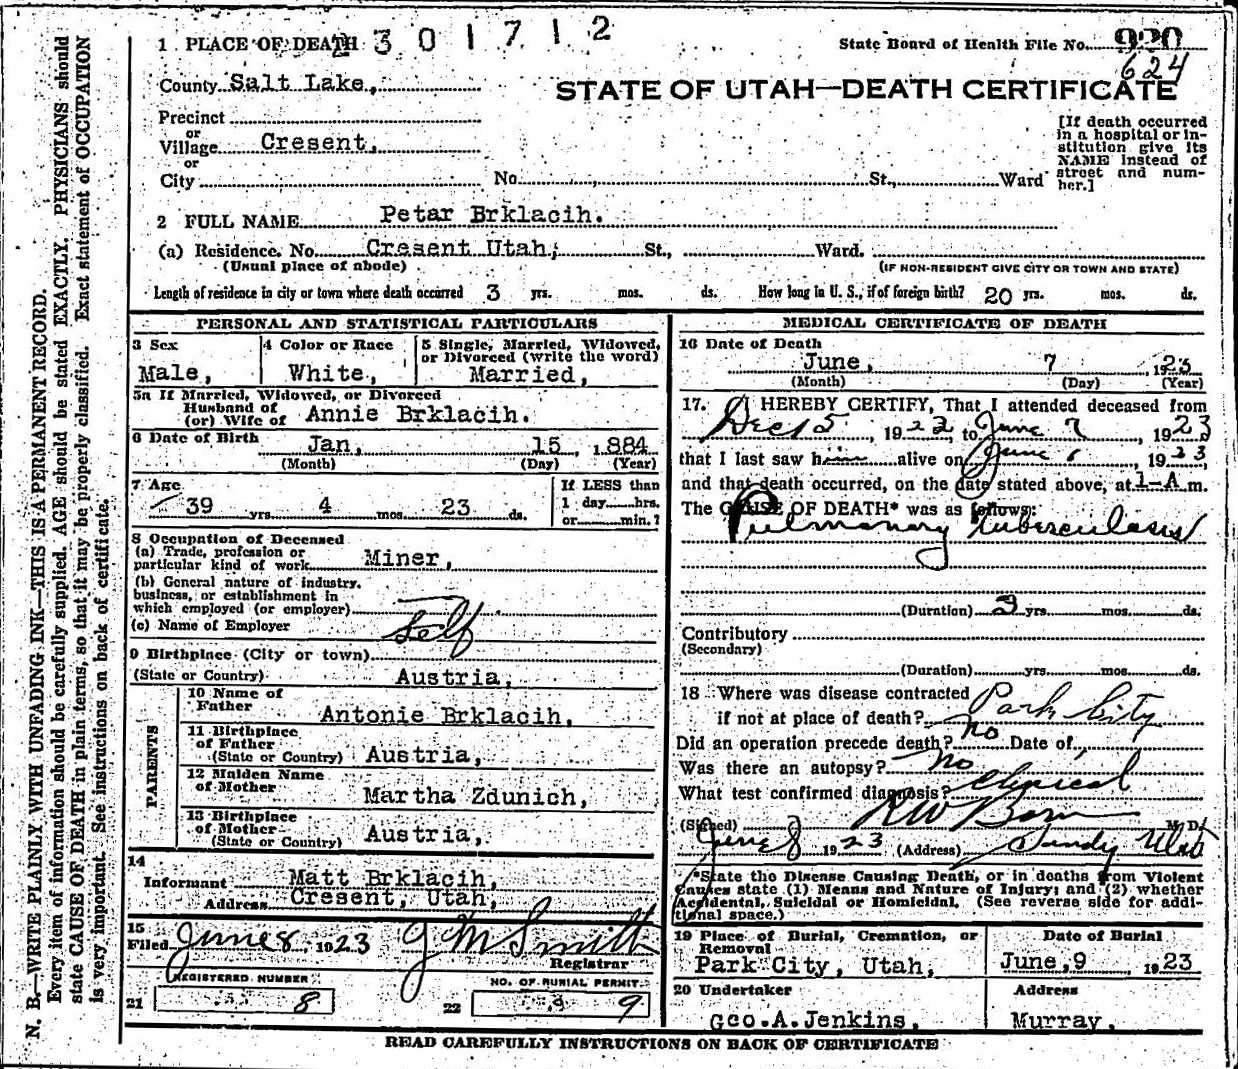 N. B.—WRITE PLAINLY WITH UNFADING INK—THIS IS A PERMANENT RECORD.
Every item of information should be carefully supplied. AGE should be stated EXACTLY. PHYSICIANS should
state CAUSE OF DEATH in plain terms, so that it may be properly classified. Exact statement of OCCUPATION
is very important. See instructions on back of certificate.
1 PLACE OF DEATH 2301712
State Board of Health File No. 920
624
County Salt Lake,
STATE OF UTAH—DEATH CERTIFICATE
Precinct
or
Village Cresent,
or
City No. St., Ward
[If death occurred
in a hospital or in-
stitution give its
NAME instead of
street and num-
ber.]
2 FULL NAME Petar Brklacih.
(a) Residence. No. Cresent Utah; St., Ward.
(Usual place of abode) (IF NON-RESIDENT GIVE CITY OR TOWN AND STATE)
Length of residence in city or town where death occurred 3 yrs. mos. ds. How long in U. S., if of foreign birth? 20 yrs. mos. ds.
PERSONAL AND STATISTICAL PARTICULARS
3 Sex
Male,
4 Color or Race
White,
5 Single, Married, Widowed,
or Divorced (write the word)
Married,
5a If Married, Widowed, or Divorced
Husband of
(or) Wife of Annie Brklacih.
6 Date of Birth Jan, 15 , 1884
(Month) (Day) (Year)
7 Age
39 yrs. 4 mos. 23 ds.
If LESS than
1 day hrs.
or min.?
8 Occupation of Deceased
(a) Trade, profession or
particular kind of work Miner,
(b) General nature of industry,
business, or establishment in
which employed (or employer)
(c) Name of Employer Self
9 Birthplace (City or town)
(State or Country) Austria,
PARENTS
10 Name of
Father Antonie Brklacih,
11 Birthplace
of Father
(State or Country) Austria,
12 Maiden Name
of Mother Martha Zdunich,
13 Birthplace
of Mother
(State or Country) Austria,
14
Informant Matt Brklacih,
Address Cresent, Utah,
15
Filed June 8, 1923 J M Smith
Registrar
REGISTERED NUMBER
21 8
NO. OF BURIAL PERMIT
22 9
MEDICAL CERTIFICATE OF DEATH
16 Date of Death
June, 7 , 1923
(Month) (Day) (Year)
17. I HEREBY CERTIFY, That I attended deceased from
Dec 15, 1922, to June 7, 1923
that I last saw him alive on June , 1923,
and that death occurred, on the date stated above, at 1-A m.
The CAUSE OF DEATH* was as follows:
Pulmonary tuberculosis
(Duration) 3 yrs. mos. ds.
Contributory
(Secondary)
(Duration) yrs. mos. ds.
18 Where was disease contracted
if not at place of death? Park City
Did an operation precede death? no Date of
Was there an autopsy? No
What test confirmed diagnosis? Clinical
(Signed) M.D.
June 8 1923 (Address) Sandy Utah
*State the Disease Causing Death, or in deaths from Violent
Causes state (1) Means and Nature of Injury; and (2) whether
Accidental, Suicidal or Homicidal. (See reverse side for addi-
tional space.)
19 Place of Burial, Cremation, or
Removal
Park City, Utah,
Date of Burial
June, 9 , 1923
20 Undertaker
Geo.A.Jenkins.
Address
Murray.
READ CAREFULLY INSTRUCTIONS ON BACK OF CERTIFICATE